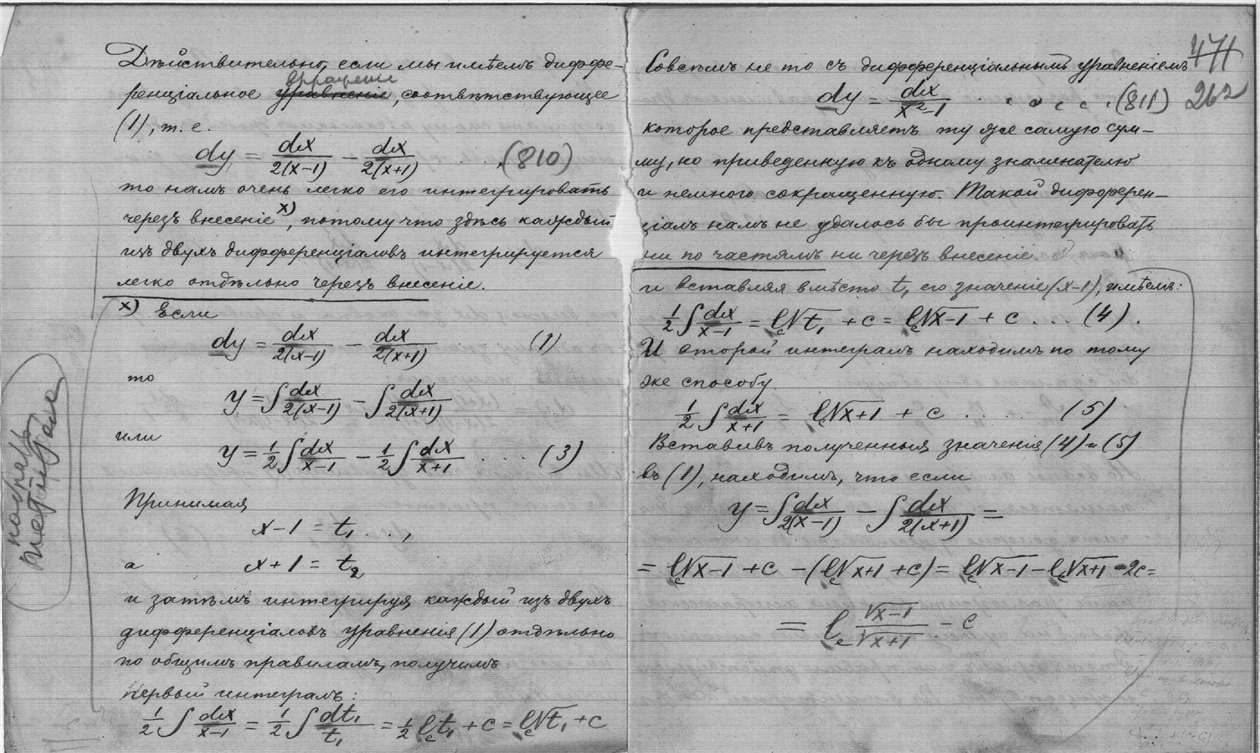 Дѣйствительно, если мы имѣемъ диффе-
ренціальное уравненіе выраженіе, соотвѣтствующее
(1), т. е.
dy = dx/2(x-1) - dx/2(x+1) (810)
то намъ очень легко его интегрировать
черезъ внесеніе x), потому что здѣсь каждый
изъ двухъ дифференціаловъ интегрируется
легко отдѣльно черезъ внесеніе.
x) Если
dy = dx/2(x-1) - dx/2(x+1) (1)
то
y = ∫dx/2(x-1) - ∫dx/2(x+1)
или
y = 1/2 ∫dx/x-1 - 1/2 ∫dx/x+1 . . . . (3)
Принимая
x-1 = t₁ . . ,
а x+1 = t₂
и затѣмъ интегрируя каждый изъ двухъ
дифференціаловъ уравненія (1) отдѣльно
по общимъ правиламъ, получимъ
первый интегралъ:
1/2 ∫ dx/x-1 = 1/2 ∫ dt₁/t₁ = 1/2 lₑt₁ + c = lₑ√t₁ + c
471
262
Совсѣмъ не то съ дифференціальнымъ уравненіемъ
dy = dx/x²-1 . . . . . (811)
которое представляетъ ту же самую сум-
му, но приведенную къ одному знаменателю
и немного сокращенную. Такой дифферен-
ціалъ намъ не удалось бы проинтегрировать
ни по частямъ ни черезъ внесеніе.
и вставляя вмѣсто t₁ его значеніе (x-1), имѣемъ:
1/2 ∫dx/x-1 = lₑ√t₁ + c = lₑ√x-1 + c . . . (4).
И второй интегралъ находимъ по тому
же способу
1/2 ∫dx/x+1 = lₑ√x+1 + c . . . . (5)
Вставивъ полученныя значенія (4) и (5)
въ (1), находимъ, что если
y = ∫dx/2(x-1) - ∫dx/2(x+1) =
= lₑ√x-1 + c - (lₑ√x+1 + c) = lₑ√x-1 - lₑ√x+1 - 2c =
= lₑ √x-1/√x+1 - c